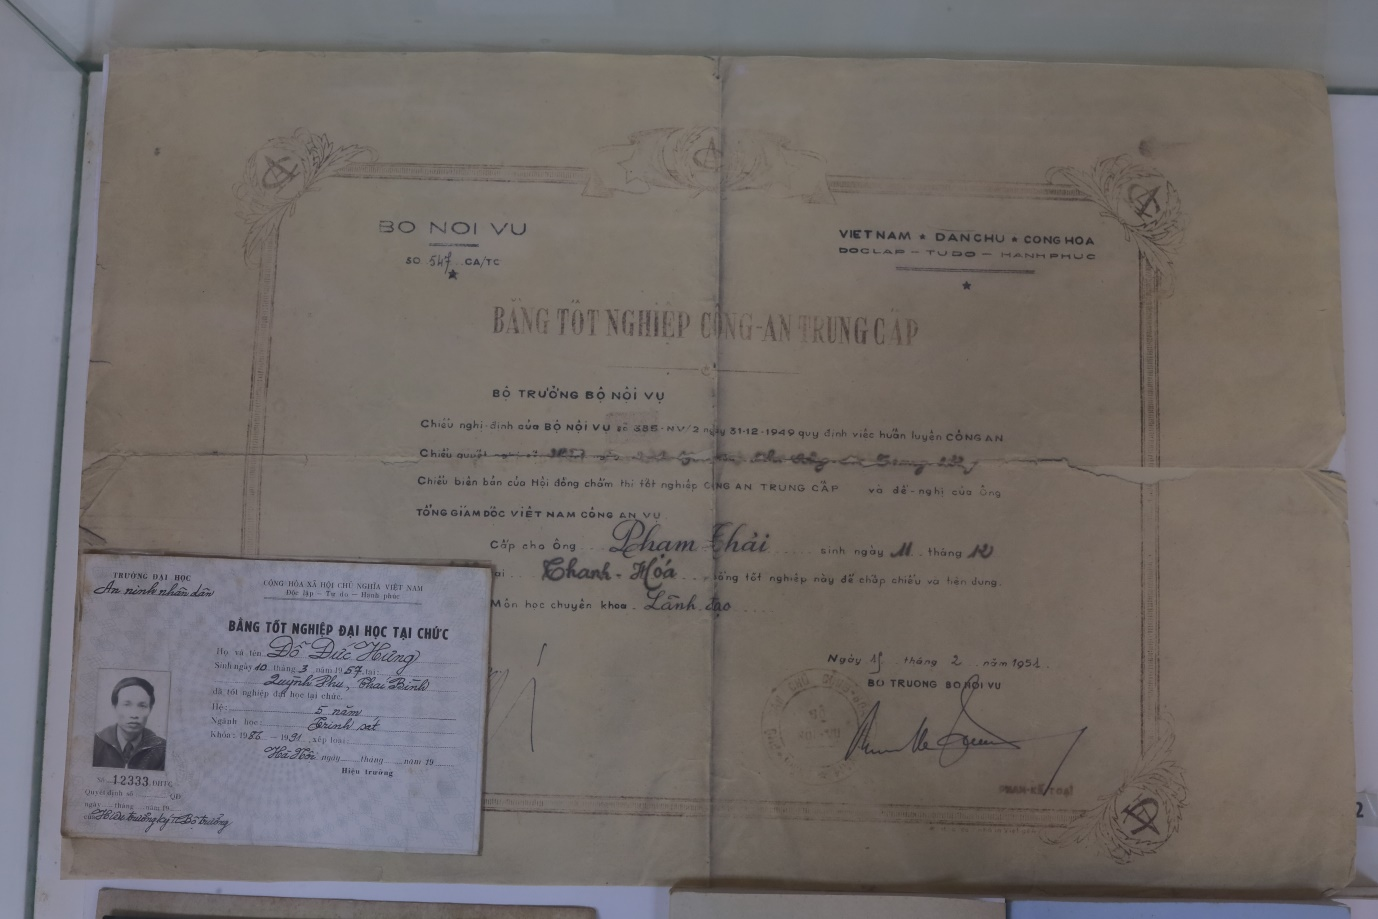 BO NOI VU
SO 547 CA/TC
VIETNAM ★ DANCHU ★ CONGHOA
DOCLAP — TUDO — HANHPHUC
BẰNG TỐT NGHIỆP CÔNG-AN TRUNG CẤP
BỘ TRƯỞNG BỘ NỘI VỤ
Chiếu nghị-định của BỘ NỘI VỤ số NV/2 ngày 31-12-1949 quy định việc huấn luyện CÔNG AN
Chiếu quyết
Chiếu biên bản của Hội đồng chấm thi tốt nghiệp CÔNG AN TRUNG CẤP và đề-nghị của Ông
TỔNG GIÁM ĐỐC VIỆT NAM CÔNG AN VỤ
Cấp cho Ông Phạm Thái sinh ngày 11 tháng 12
Thanh-Hóa tốt nghiệp này để chấp chiếu và tiện dụng.
Môn học chuyên khoa Lãnh đạo
Ngày 15 tháng 2 năm 1951
BO TRUONG BO NOI VU
PHAN-KẾ-TOẠI
TRƯỜNG ĐẠI HỌC
An ninh nhân dân
CỘNG HÒA XÃ HỘI CHỦ NGHĨA VIỆT NAM
Độc lập - Tự do - Hạnh phúc
BẰNG TỐT NGHIỆP ĐẠI HỌC TẠI CHỨC
Họ và tên Đỗ Đức Hưng
Sinh ngày 10 tháng 3 năm 1957 tại
Quỳnh Phụ, Thái Bình
đã tốt nghiệp đại học tại chức.
Hệ: 5 năm
Ngành học: Trinh sát
Khóa: 1986 - 1991 xếp loại
Hà Nội ngày tháng năm 19
Hiệu trưởng
Số 12333 ĐHTC
Quyết định số QĐ
ngày tháng năm 19
của Hiệu trưởng ký TL Bộ trưởng
2